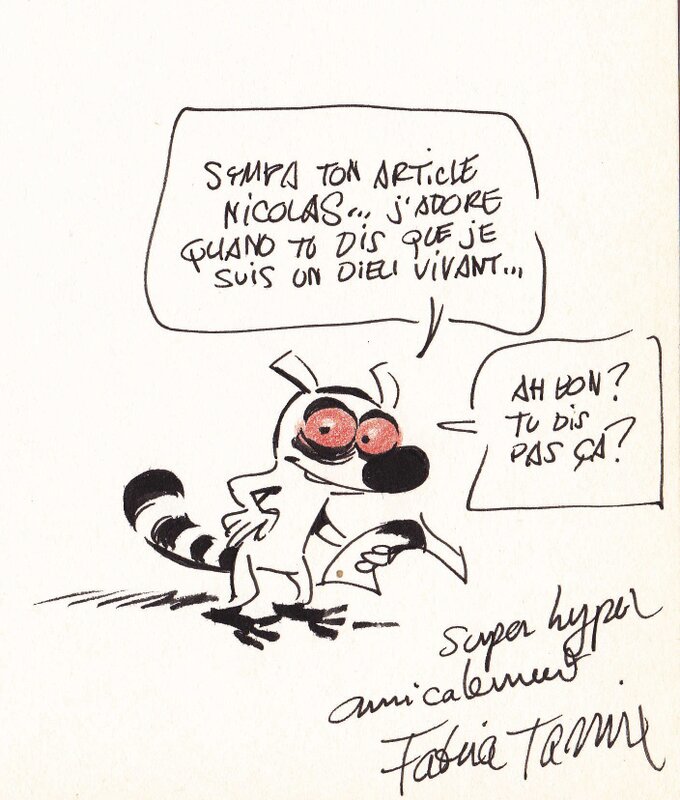 SYMPA TON ARTICLE
NICOLAS... J'ADORE
QUAND TU DIS QUE JE
SUIS UN DIEU VIVANT...
AH BON ?
TU DIS
PAS ÇA ?
super hyper
amicalement